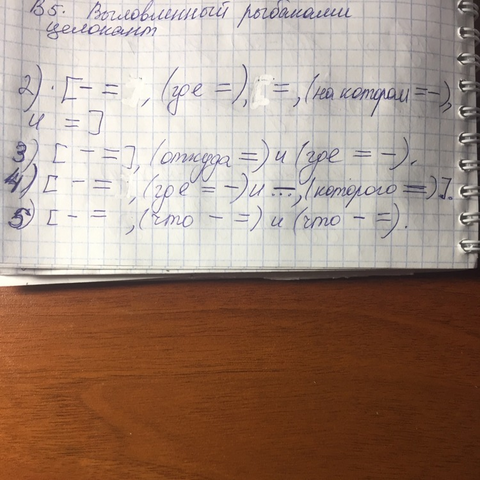 В5. Выловленный рыбаками
целокант
2) · [ - = ], (где =), [ =, (на котором = -),
и = ]
3) [ - = ], (откуда =) и (где = -).
4) [ - = , (где = -) и =, (которого =) ].
5) [ - = , (что - =) и (что - =).